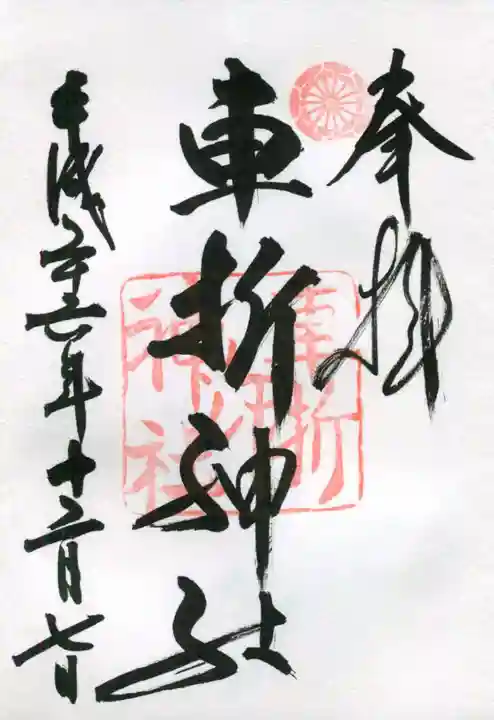 奉拝
車折神社
平成二十六年十二月七日
車折神社